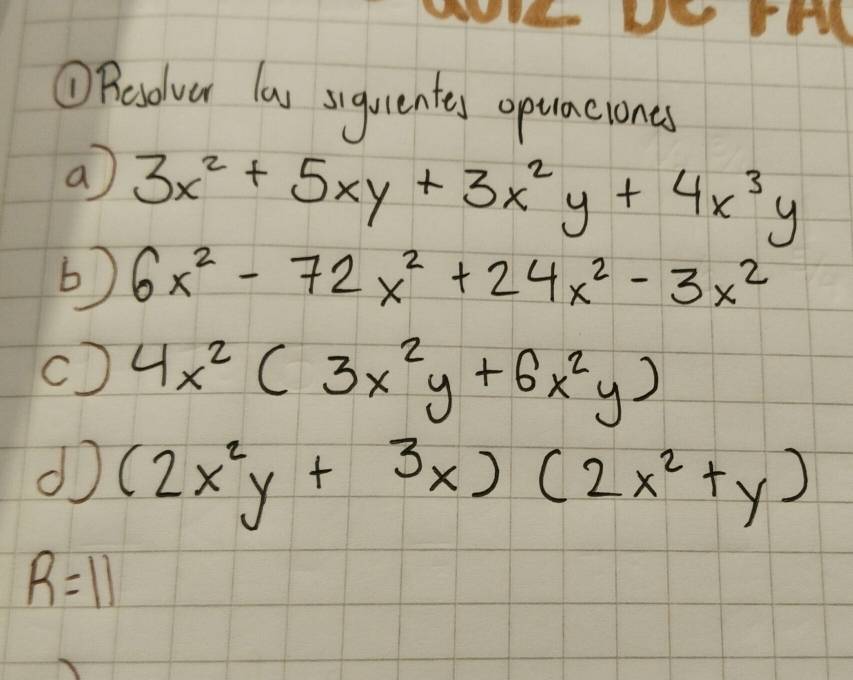 QUIZ DE FAC
① Resolver las siguientes operaciones
a) 3x² + 5xy + 3x²y + 4x³y
b) 6x² - 72x² + 24x² - 3x²
c) 4x² ( 3x²y + 6x²y)
d) (2x²y + 3x) (2x² + y)
R=||